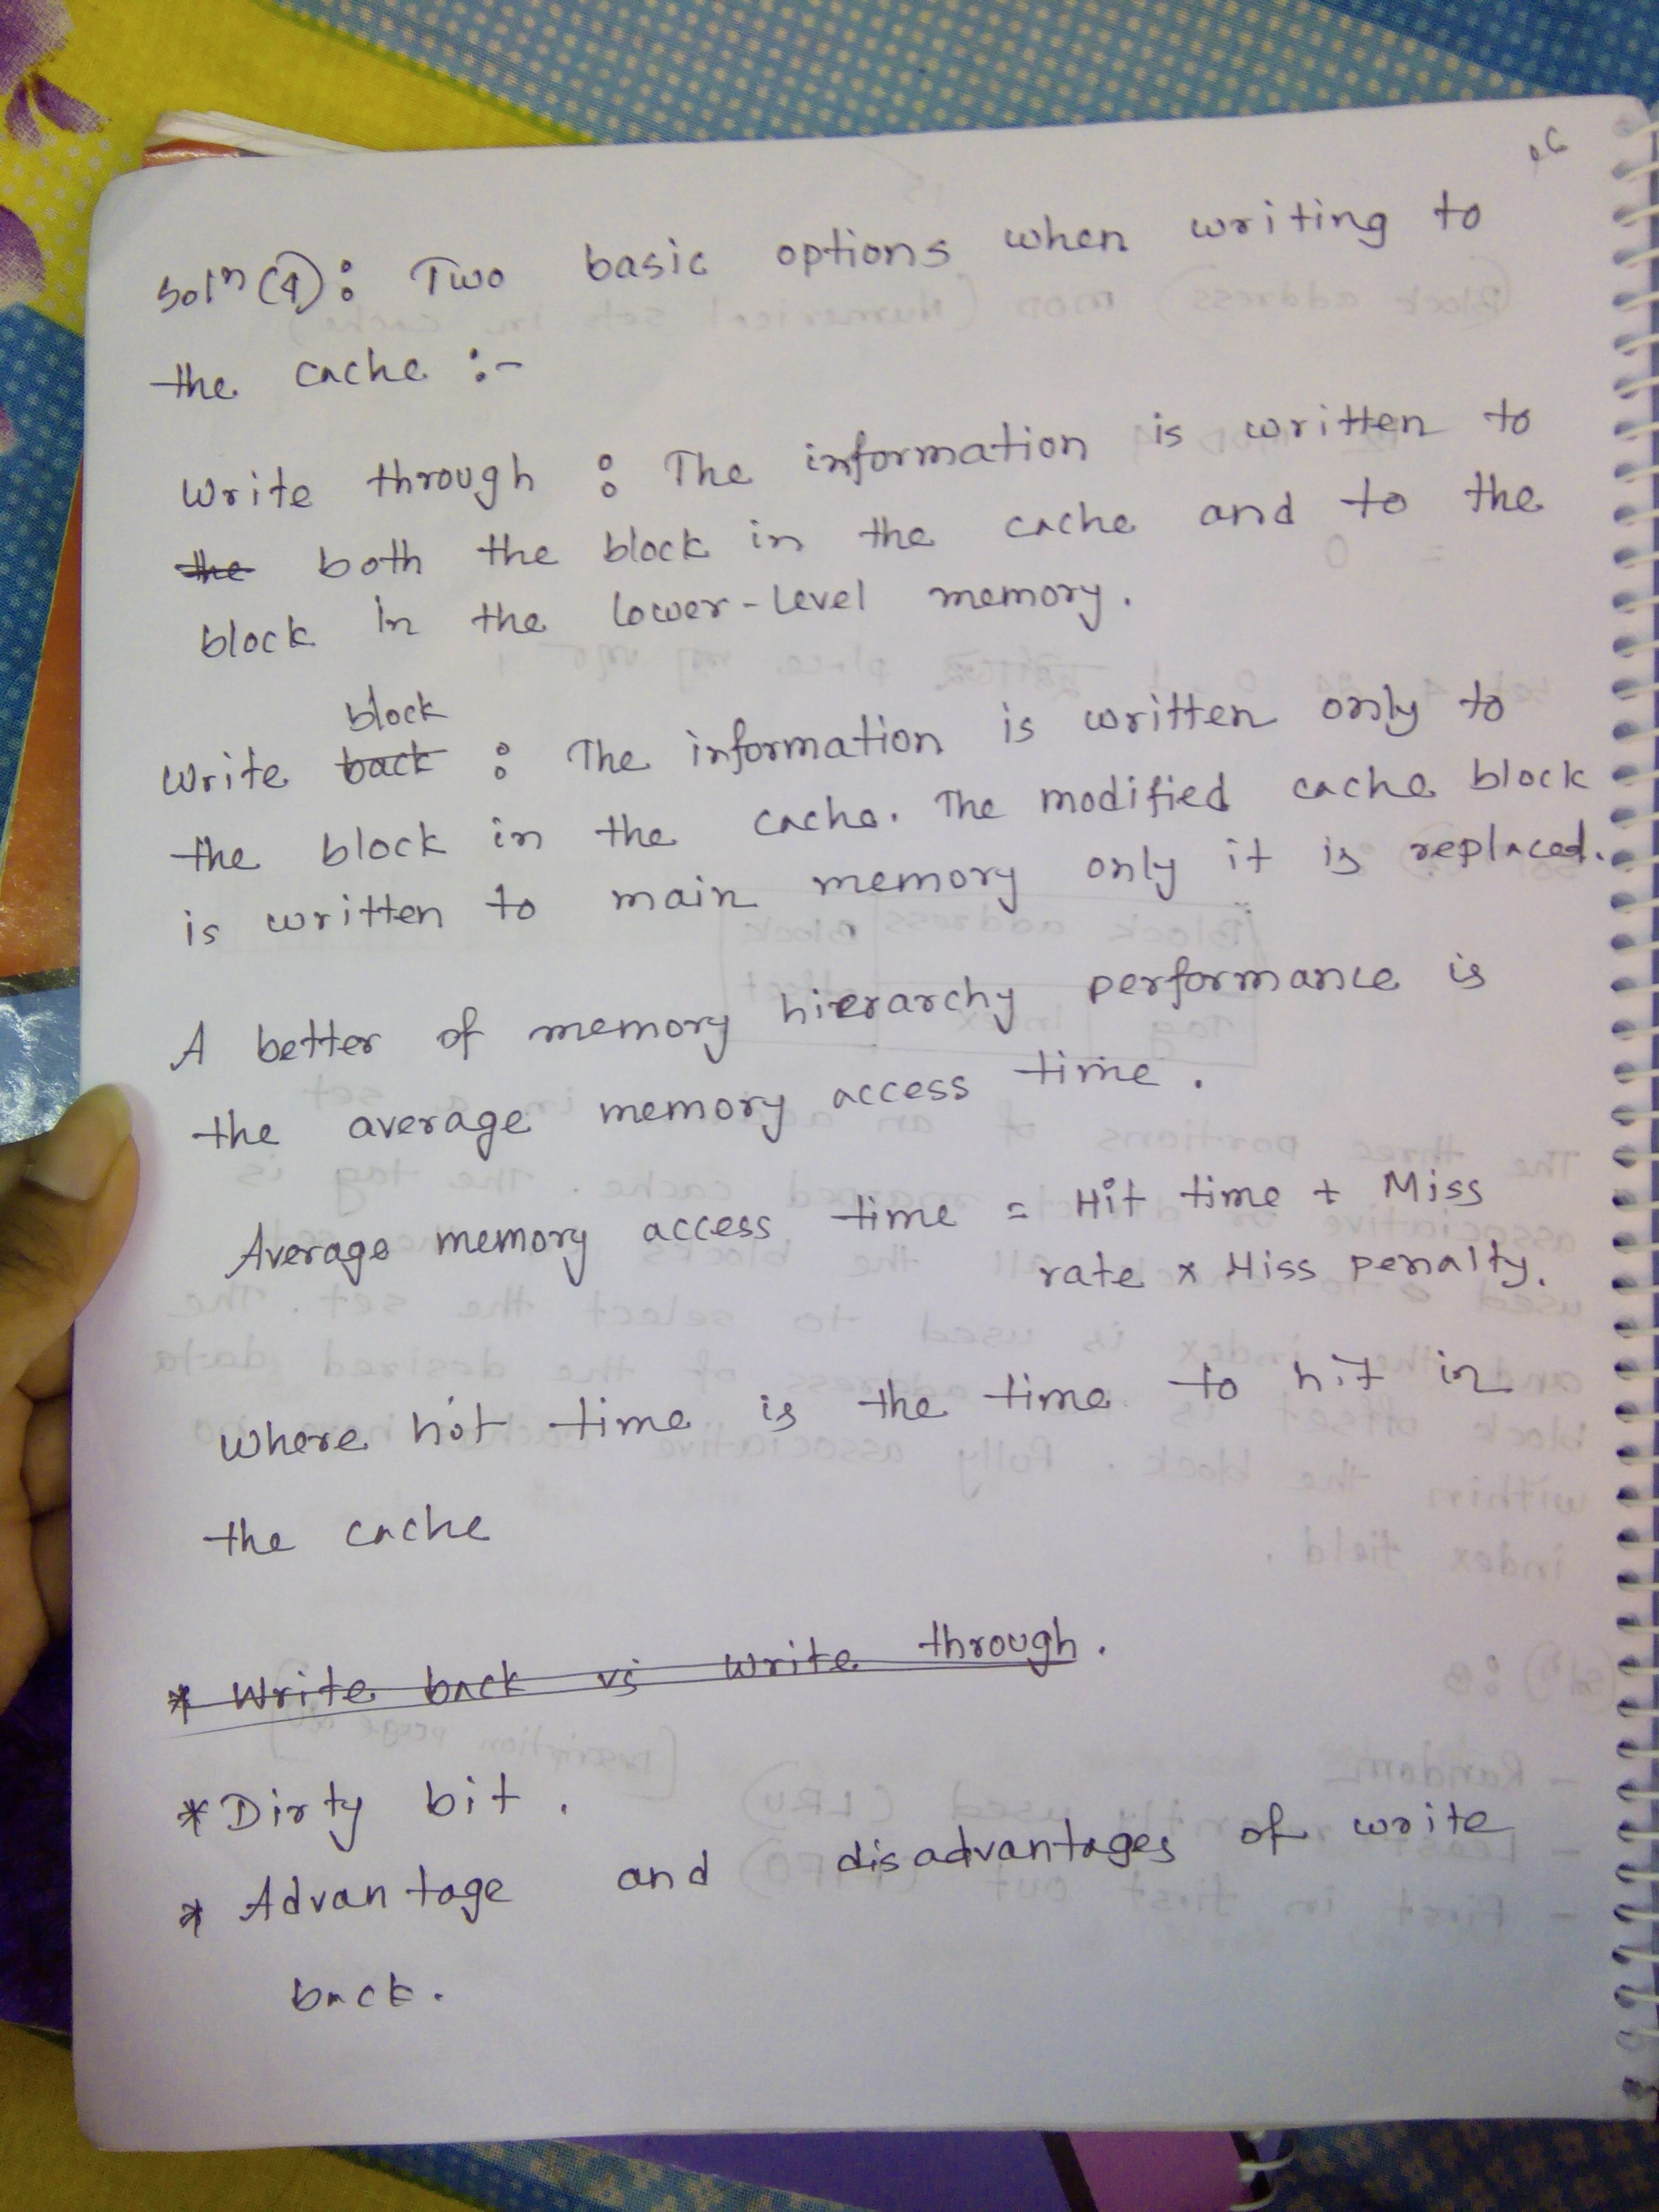 Sol^n (4): Two basic options when writing to
the cache :-
Write through : The information is written to
the both the block in the cache and to the
block in the lower-level memory.
block
Write back : The information is written only to
the block in the cache. The modified cache block
is written to main memory only it is replaced.
A better of memory hierarchy performance is
the average memory access time.
Average memory access time = Hit time + Miss
rate x Miss penalty.
where hit time is the time to hit in
the cache
* Write back vs write through.
* Dirty bit.
* Advantage and disadvantages of write
back.